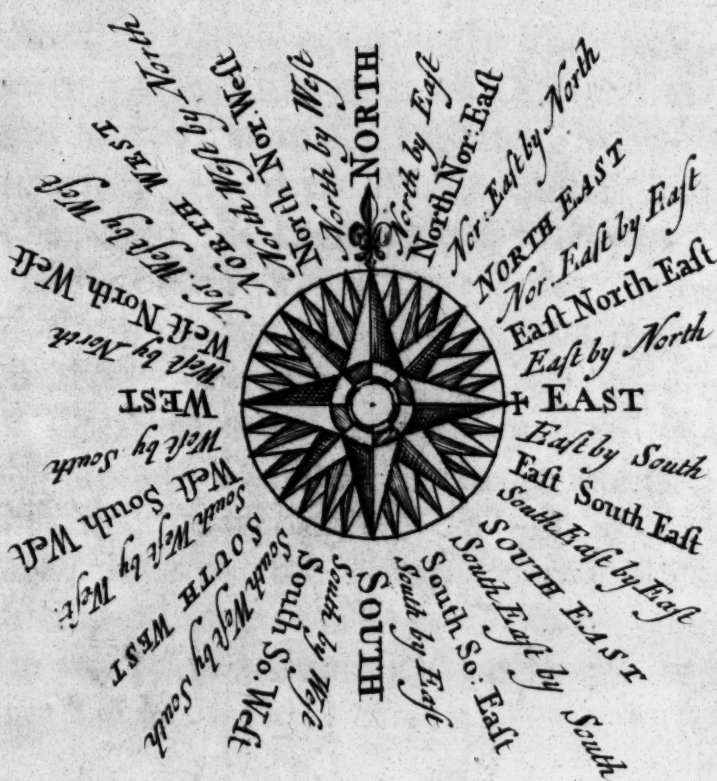 NORTH
North by Eaſt
North Nor: Eaſt
Nor: Eaſt by North
NORTH EAST
Nor Eaſt by Eaſt
Eaſt North Eaſt
Eaſt by North
EAST
Eaſt by South
Eaſt South Eaſt
South Eaſt by Eaſt
SOUTH EAST
South Eaſt by South
South So: Eaſt
South by Eaſt
SOUTH
South by Weſt
South So. Weſt
South Weſt by South
SOUTH WEST
South Weſt by Weſt.
Weſt South Weſt
Weſt by South
WEST
Weſt by North
Weſt North Weſt
Nor Weſt by Weſt
NORTH WEST
North Weſt by North
North Nor. Weſt
North by Weſt